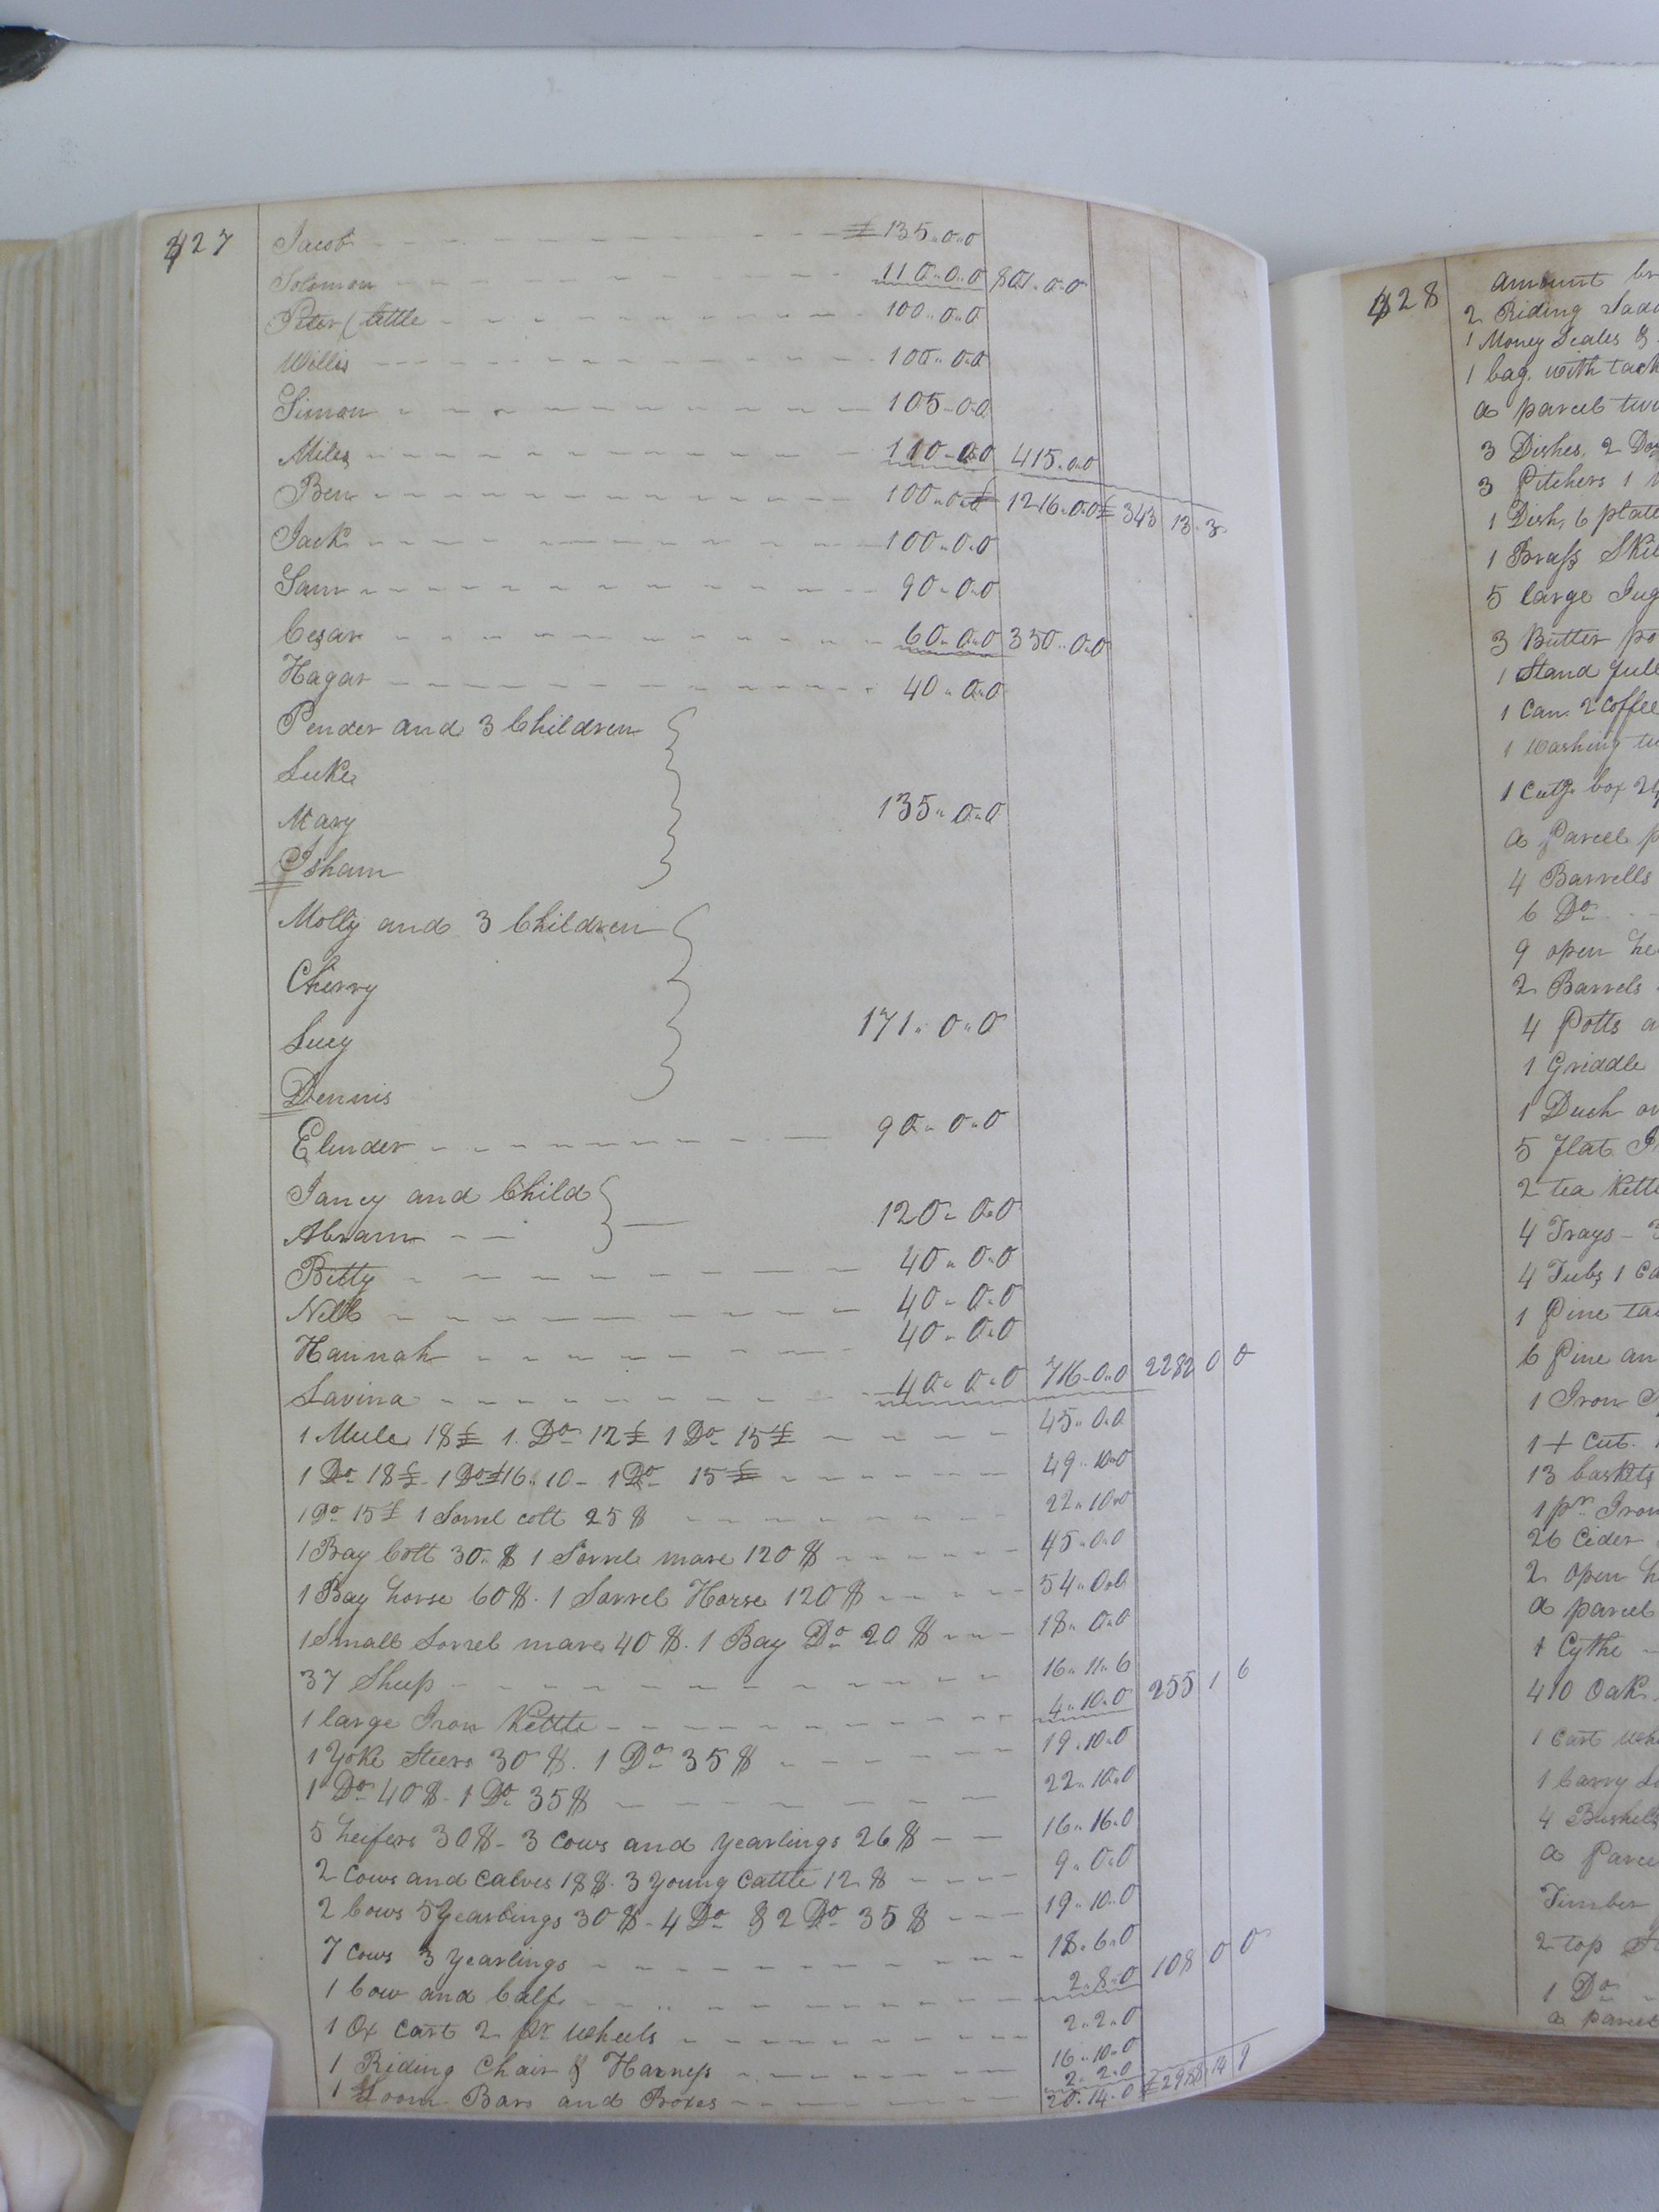 427
Jacob £135..0..0
Solomon 110..0..0 801..0..0
Peter (little 100..0..0
Willis 100..0..0
Simon 105..0..0
Miles 110..0..0 415..0..0
Ben 100..0..0 £1216..0..0 £343 13..3
Jack 100..0..0
Sam 90..0..0
Cesar 60..0..0 350..0..0
Hagar 40..0..0
Pender and 3 Children
Luke
Mary 135..0..0
Isham
Molly and 3 Children
Cherry
Lucy 171..0..0
Dennis
Elender 90..0..0
Janey and Child
Abram 120..0..0
Bitty 40..0..0
Nell 40..0..0
Hannah 40..0..0
Lavina 40..0..0 716..0..0 2282 0 0
1 Mule 18£ 1 Do 12£ 1 Do 15£ 45..0..0
1 Do 18£ - 1 Do £16..10 - 1 Do 15£ 49..10..0
1 Do 15£ 1 Sorrel colt 25$ 22..10..0
1 Bay Colt 30..$ 1 Sorrel mare 120$ 45..0..0
1 Bay horse 60$. 1 Sorrel Horse 120$ 54..0..0
1 Small Sorrel mare 40$. 1 Bay Do 20$ 18..0..0
37 Sheep 16..11..6
1 large Iron Kettle 4..10..0 255 1 6
1 Yoke Steers 30$. 1 Do 35$ 19..10..0
1 Do 40$ - 1 Do 35$ 22..10..0
5 heifers 30$ - 3 Cows and yearlings 26$ 16..16..0
2 Cows and Calves 18$. 3 Young Cattle 12$ 9..0..0
2 Cows 5 Yearlings 30$ - 4 Do & 2 Do 35$ 19..10..0
7 Cows 3 yearlings 18..6..0
1 Cow and Calf 2..8..0 108 0 0
1 Ox Cart 2 pr Wheels 2..2..0
1 Riding Chair & Harness 16..10..0
2..2..0
1 Loom Bars and Boxes 20..14..0 £2988 14 9
428
amount
2 Riding
1 Money Scales &
1 bag. with
a parcel
3 Dishes, 2
3 Pitchers 1
1 Dish, 6
1 Brass
5 large
3 Butter
1 Stand
1 Can. 2
1 Washing
1 Cutg box
a Parcel
4 Barrells
6 Do
9 open
2 Barrels
4 Potts
1 Griddle
1 Duch
5 flat
2 tea
4 Trays - 3
4 Tubs 1
1 Pine
6 Pine
1 Iron
1 + Cut.
13 baskets
1 pr Iron
26 Cider
2 Open
a parcel
1 Cythe
410 Oak
1 Cart
1 Carry
4 Bushels
a
Timber
2 top
1 Do
a